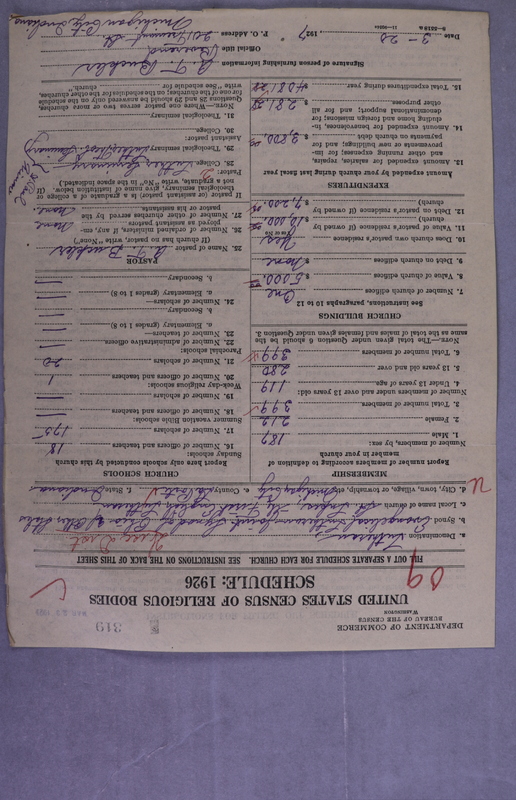 DEPARTMENT OF COMMERCE
BUREAU OF THE CENSUS
WASHINGTON
319
UNITED STATES CENSUS OF RELIGIOUS BODIES
SCHEDULE: 1926
09
FILL OUT A SEPARATE SCHEDULE FOR EACH CHURCH. SEE INSTRUCTIONS ON THE BACK OF THIS SHEET
a. Denomination Lutheran
b. Synod Evangelical Lutheran Joint Synod of Ohio & Other States
c. Local name of church St. Luke's First English Lutheran
d. City, town, village, or township Michigan City e. County La Porte f. State Indiana
MEMBERSHIP
Report number of members according to definition of
member in your church
Number of members, by sex:
1. Male 187
2. Female 212
3. Total number of members 399
4. Under 13 years of age 119
5. 13 years old and over 280
6. Total number of members 399
NOTE.—The total given under Question 6 should be the
same as the total of males and females given under Question 3.
CHURCH BUILDINGS
See instructions, paragraphs 10 to 12
7. Number of church edifices One
8. Value of church edifices $ 5000
9. Debt on church edifices $ None
10. Does church own pastor's residence Yes
(Yes or No)
11. Value of pastor's residence (if owned by
church) $ 10,000
12. Debt on pastor's residence (if owned by
church) $ 7,200
EXPENDITURES
Amount expended by your church during last fiscal year
13. Amount expended for salaries, repairs,
and other running expenses; for improvements
or new building; and for
payments on church debt
14. Amount expended for benevolences, including
home and foreign missions; for
denominational support; and for all
other purposes $ 281.28
15. Total expenditures during year $ 4081.28
CHURCH SCHOOLS
Report here only schools conducted by this church
Sunday schools:
16. Number of officers and teachers 18
17. Number of scholars 175
Summer vacation Bible schools:
18. Number of officers and teachers
19. Number of scholars
Week-day religious schools:
20. Number of officers and teachers 1
21. Number of scholars 20
Parochial schools:
22. Number of administrative officers
23. Number of teachers—
a. Elementary (grades 1 to 8)
b. Secondary
24. Number of scholars—
a. Elementary (grades 1 to 8)
b. Secondary
PASTOR
25. Name of pastor A. T. Buckler
(If church has no pastor, write "None")
26. Number of ordained ministers, if any, employed
as assistant pastors None
27. Number of other churches served by the
pastor or his assistants None
If pastor (or assistant pastor) is a graduate of a college or
theological seminary, give name of institution below. (If
not a graduate, write "No" in the space indicated.)
Pastor:
28. College
29. Theological seminary
Assistant pastor:
30. College
31. Theological seminary
NOTE.—Where one pastor serves two or more churches,
Questions 28 and 29 should be answered only on the schedule
for one of the churches; on the schedules for the other churches,
write "See schedule for church."
Signature of person furnishing information A. T. Buckler
Official title
Date 3-28 1927 P. O. Address
Michigan City, Indiana